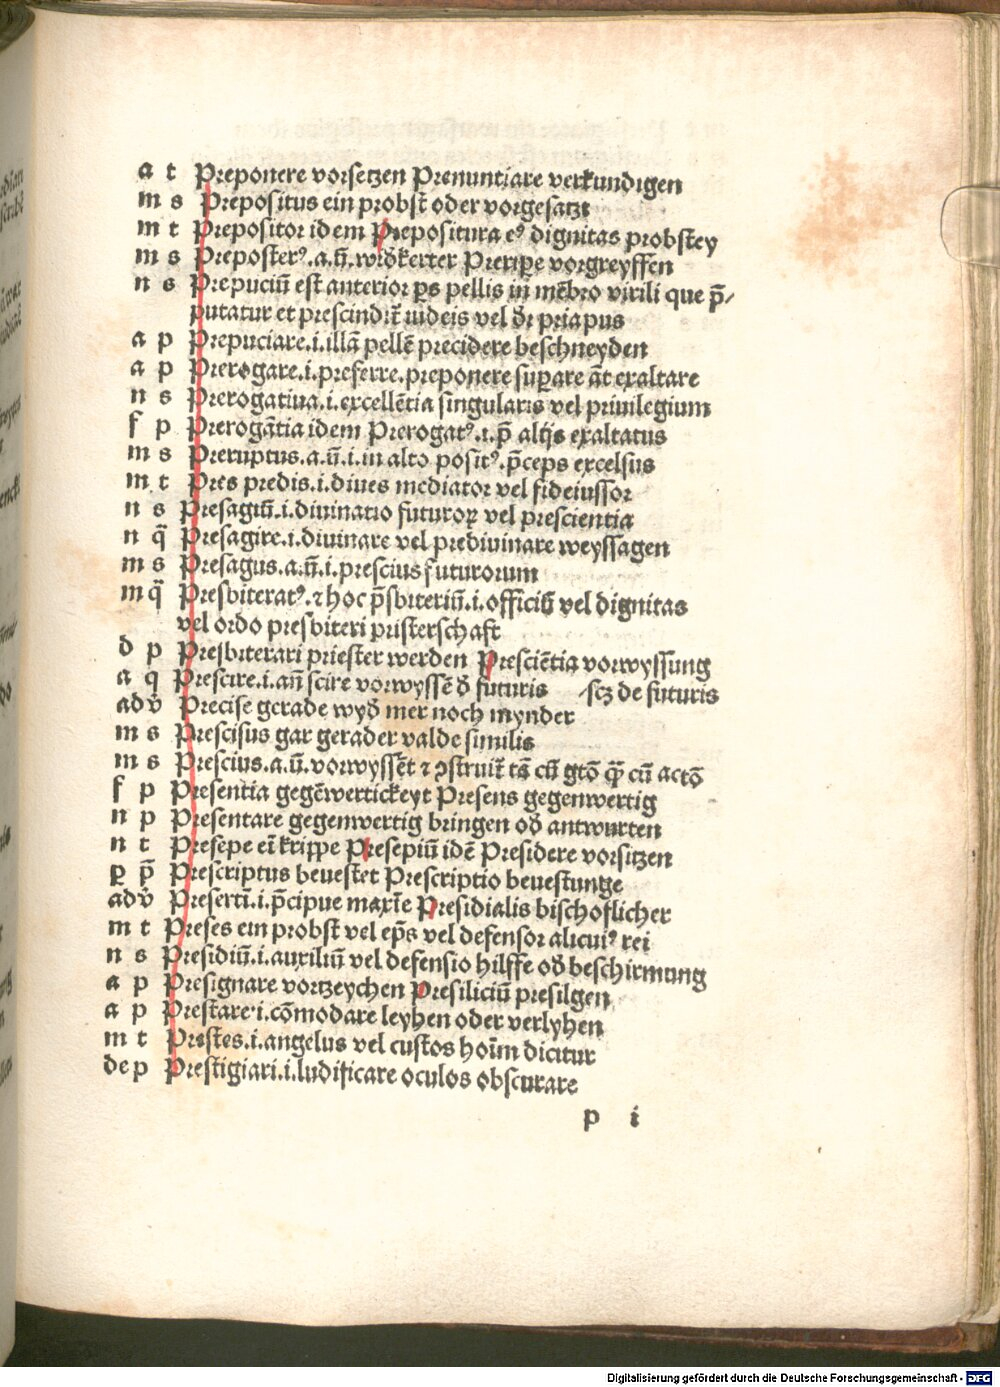 a t Preponere vorsetzen Prenunciare verkundigen
m s Prepositus ein probst oder vorgesatzt
m t Prepositor idem Prepositura eꝰ dignitas probstey
m s Preposterꝰ.a.ū. widkerter Preriꝑe vorgreyffen
n s Prepuciū est anterior ꝑs pellis in mēbro virili que p̄/
putatur et prescindit᷑ iudeis vel d̄r priapus
a p Prepuciare.i.illā pellē precidere beschneyden
a p Prerogare.i.preferre.preponere suꝑare āt exaltare
n s Prerogatiua.i.excellētia singularis vel priuilegium
f p Prerogātia idem Prerogatꝰ.i.p̄ alijs exaltatus
m s Preruptus.a.ū.i.in alto positꝰ.p̄ceps excelsus
m t Pres predis.i.diues mediator vel fideiussor
n s Presagiū.i.diuinatio futuroꝝ vel prescientia
n q̄ Presagire.i.diuinare vel predivinare weyssagen
m s Presagus.a.ū.i.prescius futurorum
m q̄ Presbiteratꝰ.⁊ hoc p̄sbiteriū.i.officiū vel dignitas
vel ordo presbiteri pristerschaft
d p Presbiterari priester werden Presciētia vorwyssung
a q Prescire.i.añ scire vorwyssē đ futuris scꝫ de futuris
adv̄ Precise gerade wyđ mer noch mynder
m s Prescisus gar gerader valde similis
m s Prescius.a.ū.vorwyssēt ⁊ ꝯstruit᷑ tā cū gtō q̄ꝫ cū actō
f p Presentia gegēwertickeyt Presens gegenwertig
n p Presentare gegenwertig bringen ođ antwurten
n t Presepe eī krippe Presepiū idē Presidere vorsitzen
ꝑ p̄ Prescriptus beuestet Prescriptio beuestunge
adv̄ Presertī.i.p̄cipue maxīe Presidialis bischoflicher
m t Preses ein probst vel ep̄s vel defensor alicuiꝰ rei
n s Presidiū.i.auxiliū vel defensio hilffe ođ beschirmung
a p Presignare vortzeychen Presiliciū presilgen
a p Prestare.i.cōmodare leyhen oder verlyhen
m t Prestes.i.angelus vel custos hoīm dicitur
de p Prestigiari.i.ludificare oculos obscurare
p i
Digitalisierung gefördert durch die Deutsche Forschungsgemeinschaft - DFG